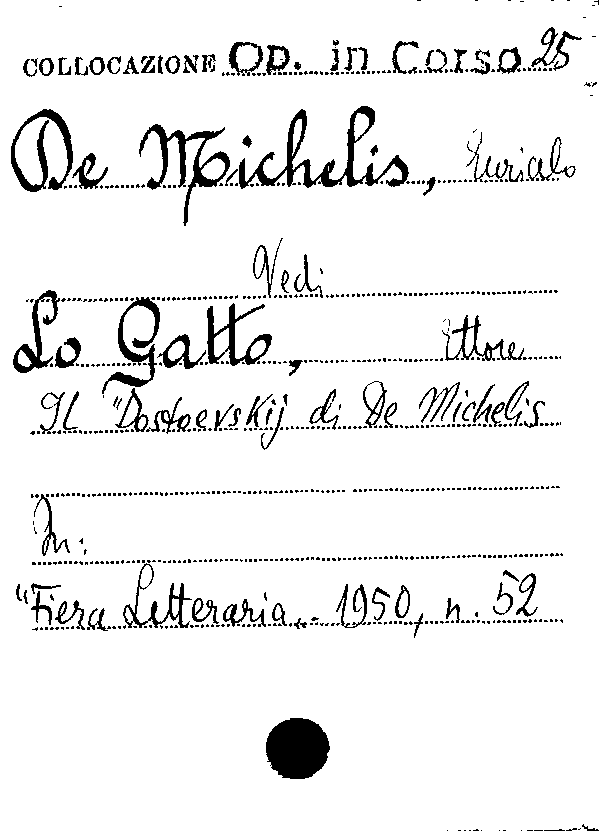 COLLOCAZIONE Op. in Corso 25
De Michelis, Eurialo
Vedi
Lo Gatto, Ettore
Il "Dostoevskij di De Michelis
In:
"Fiera Letteraria". 1950, n. 52